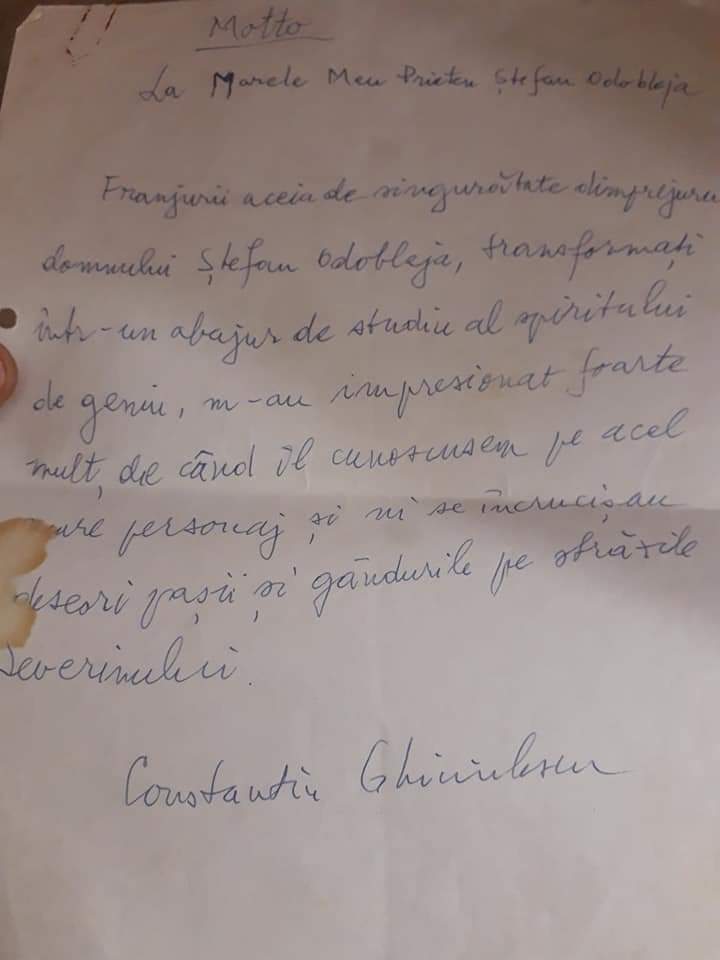 Motto
La Marele Meu Prieten Ștefan Odobleja
Franjurii aceia de singurătate dimprejuru
domnului Ștefan Odobleja, transformați
într-un abajur de studiu al spiritului
de geniu, m-au impresionat foarte
mult, de când îl cunoscusem pe acel
mare personaj și ni se încrucișau
deseori pașii și gândurile pe străzile
Severinului.
Constantin